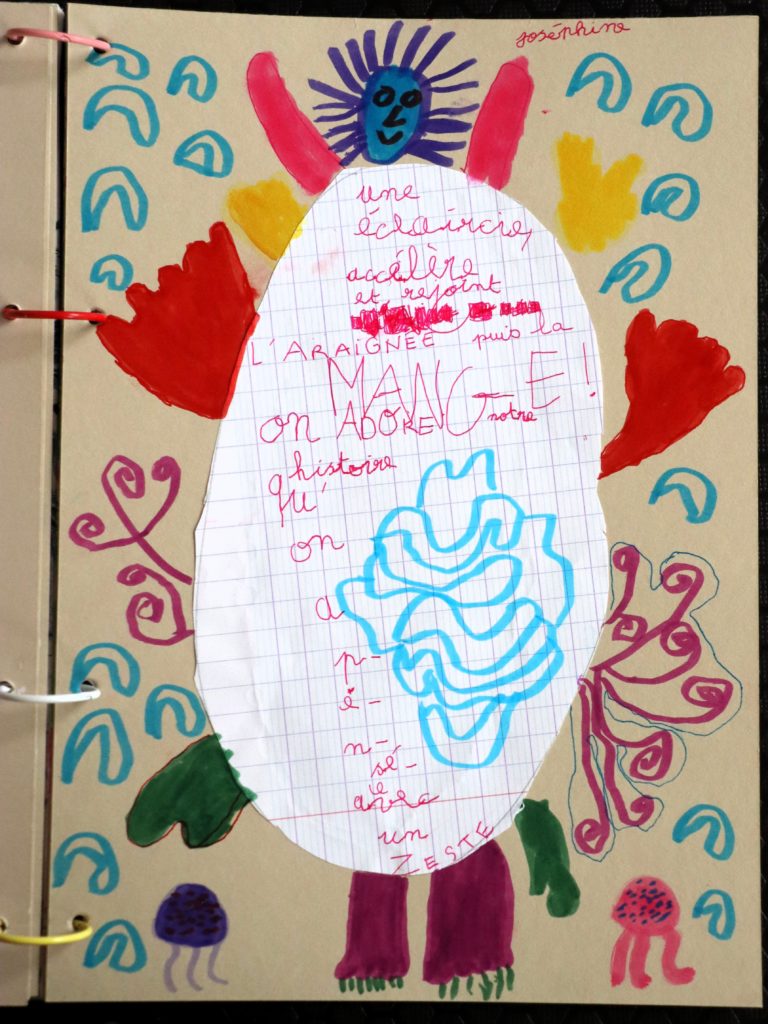 joséphine
une
éclaircie,
accélère
et rejoint
L'ARAIGNÉE puis la
MANGE!
on ADORE notre
histoire
qu'
on
a
p-
é-
n-
sé-
e
avec
un
ZESTE